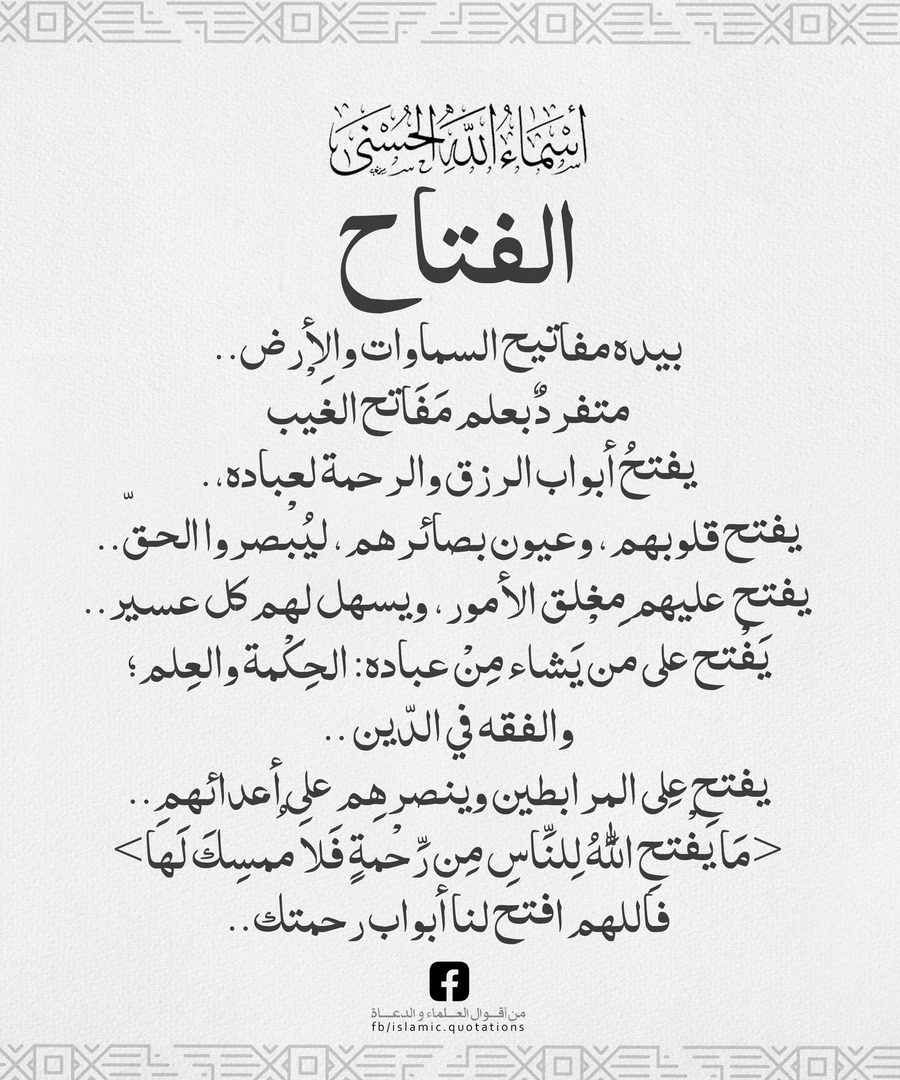 أسْمَاءُ اللَّهِ الحُسْنَى
الفتاح
بيده مفاتيح السماوات والأرض..
متفردٌ بعلم مَفَاتح الغيب
يفتحُ أبواب الرزق والرحمة لعباده،.
يفتح قلوبهم، وعيون بصائرهم، ليُبْصروا الحقّ..
يفتح عليهم مِغلق الأمور، ويسهل لهم كل عسير..
يَفْتح على من يَشاء مِنْ عباده: الحِكْمة والعِلم؛
والفقه في الدّين..
يفتح على المرابطين وينصرهم على أعدائهم..
<مَا يَفْتحِ اللهُ لِلنَّاسِ مِن رَّحْمةٍ فَلا ممسِكَ لَهَا>
فاللهم افتح لنا أبواب رحمتك..
من أقـوال العـلـماء والدعـاة
fb/islamic.quotations